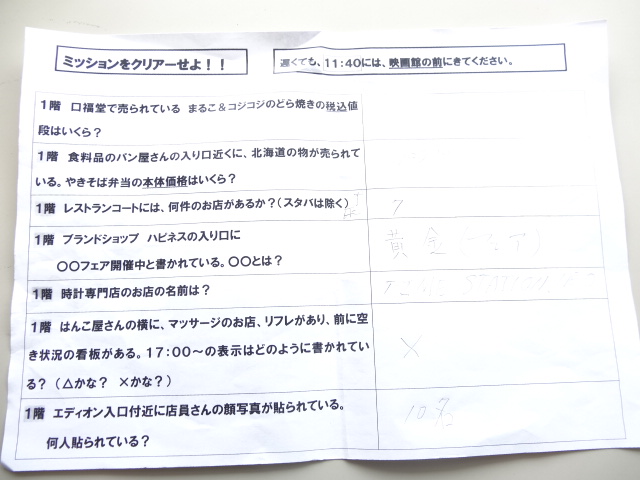 ミッションをクリアーせよ！！
遅くても、11:40には、映画館の前にきてください。
1階 口福堂で売られている まるこ＆コジコジのどら焼きの税込値
段はいくら？
1階 食料品のパン屋さんの入り口近くに、北海道の物が売られて
いる。やきそば弁当の本体価格はいくら？
1階 レストランコートには、何件のお店があるか？(スタバは除く)
7
1階 ブランドショップ ハピネスの入り口に
〇〇フェア開催中と書かれている。〇〇とは？
黄金(フェア)
1階 時計専門店のお店の名前は？
TIME STATION
1階 はんこ屋さんの横に、マッサージのお店、リフレがあり、前に空
き状況の看板がある。17:00～の表示はどのように書かれてい
る？（△かな？ ×かな？）
×
1階 エディオン入口付近に店員さんの顔写真が貼られている。
何人貼られている？
10名